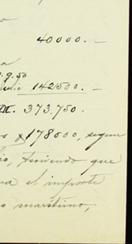 40000.-
a
9.50
142500.-
373.750.-
x 178000, segun
, teniendo que
a el importe
o maritimo,